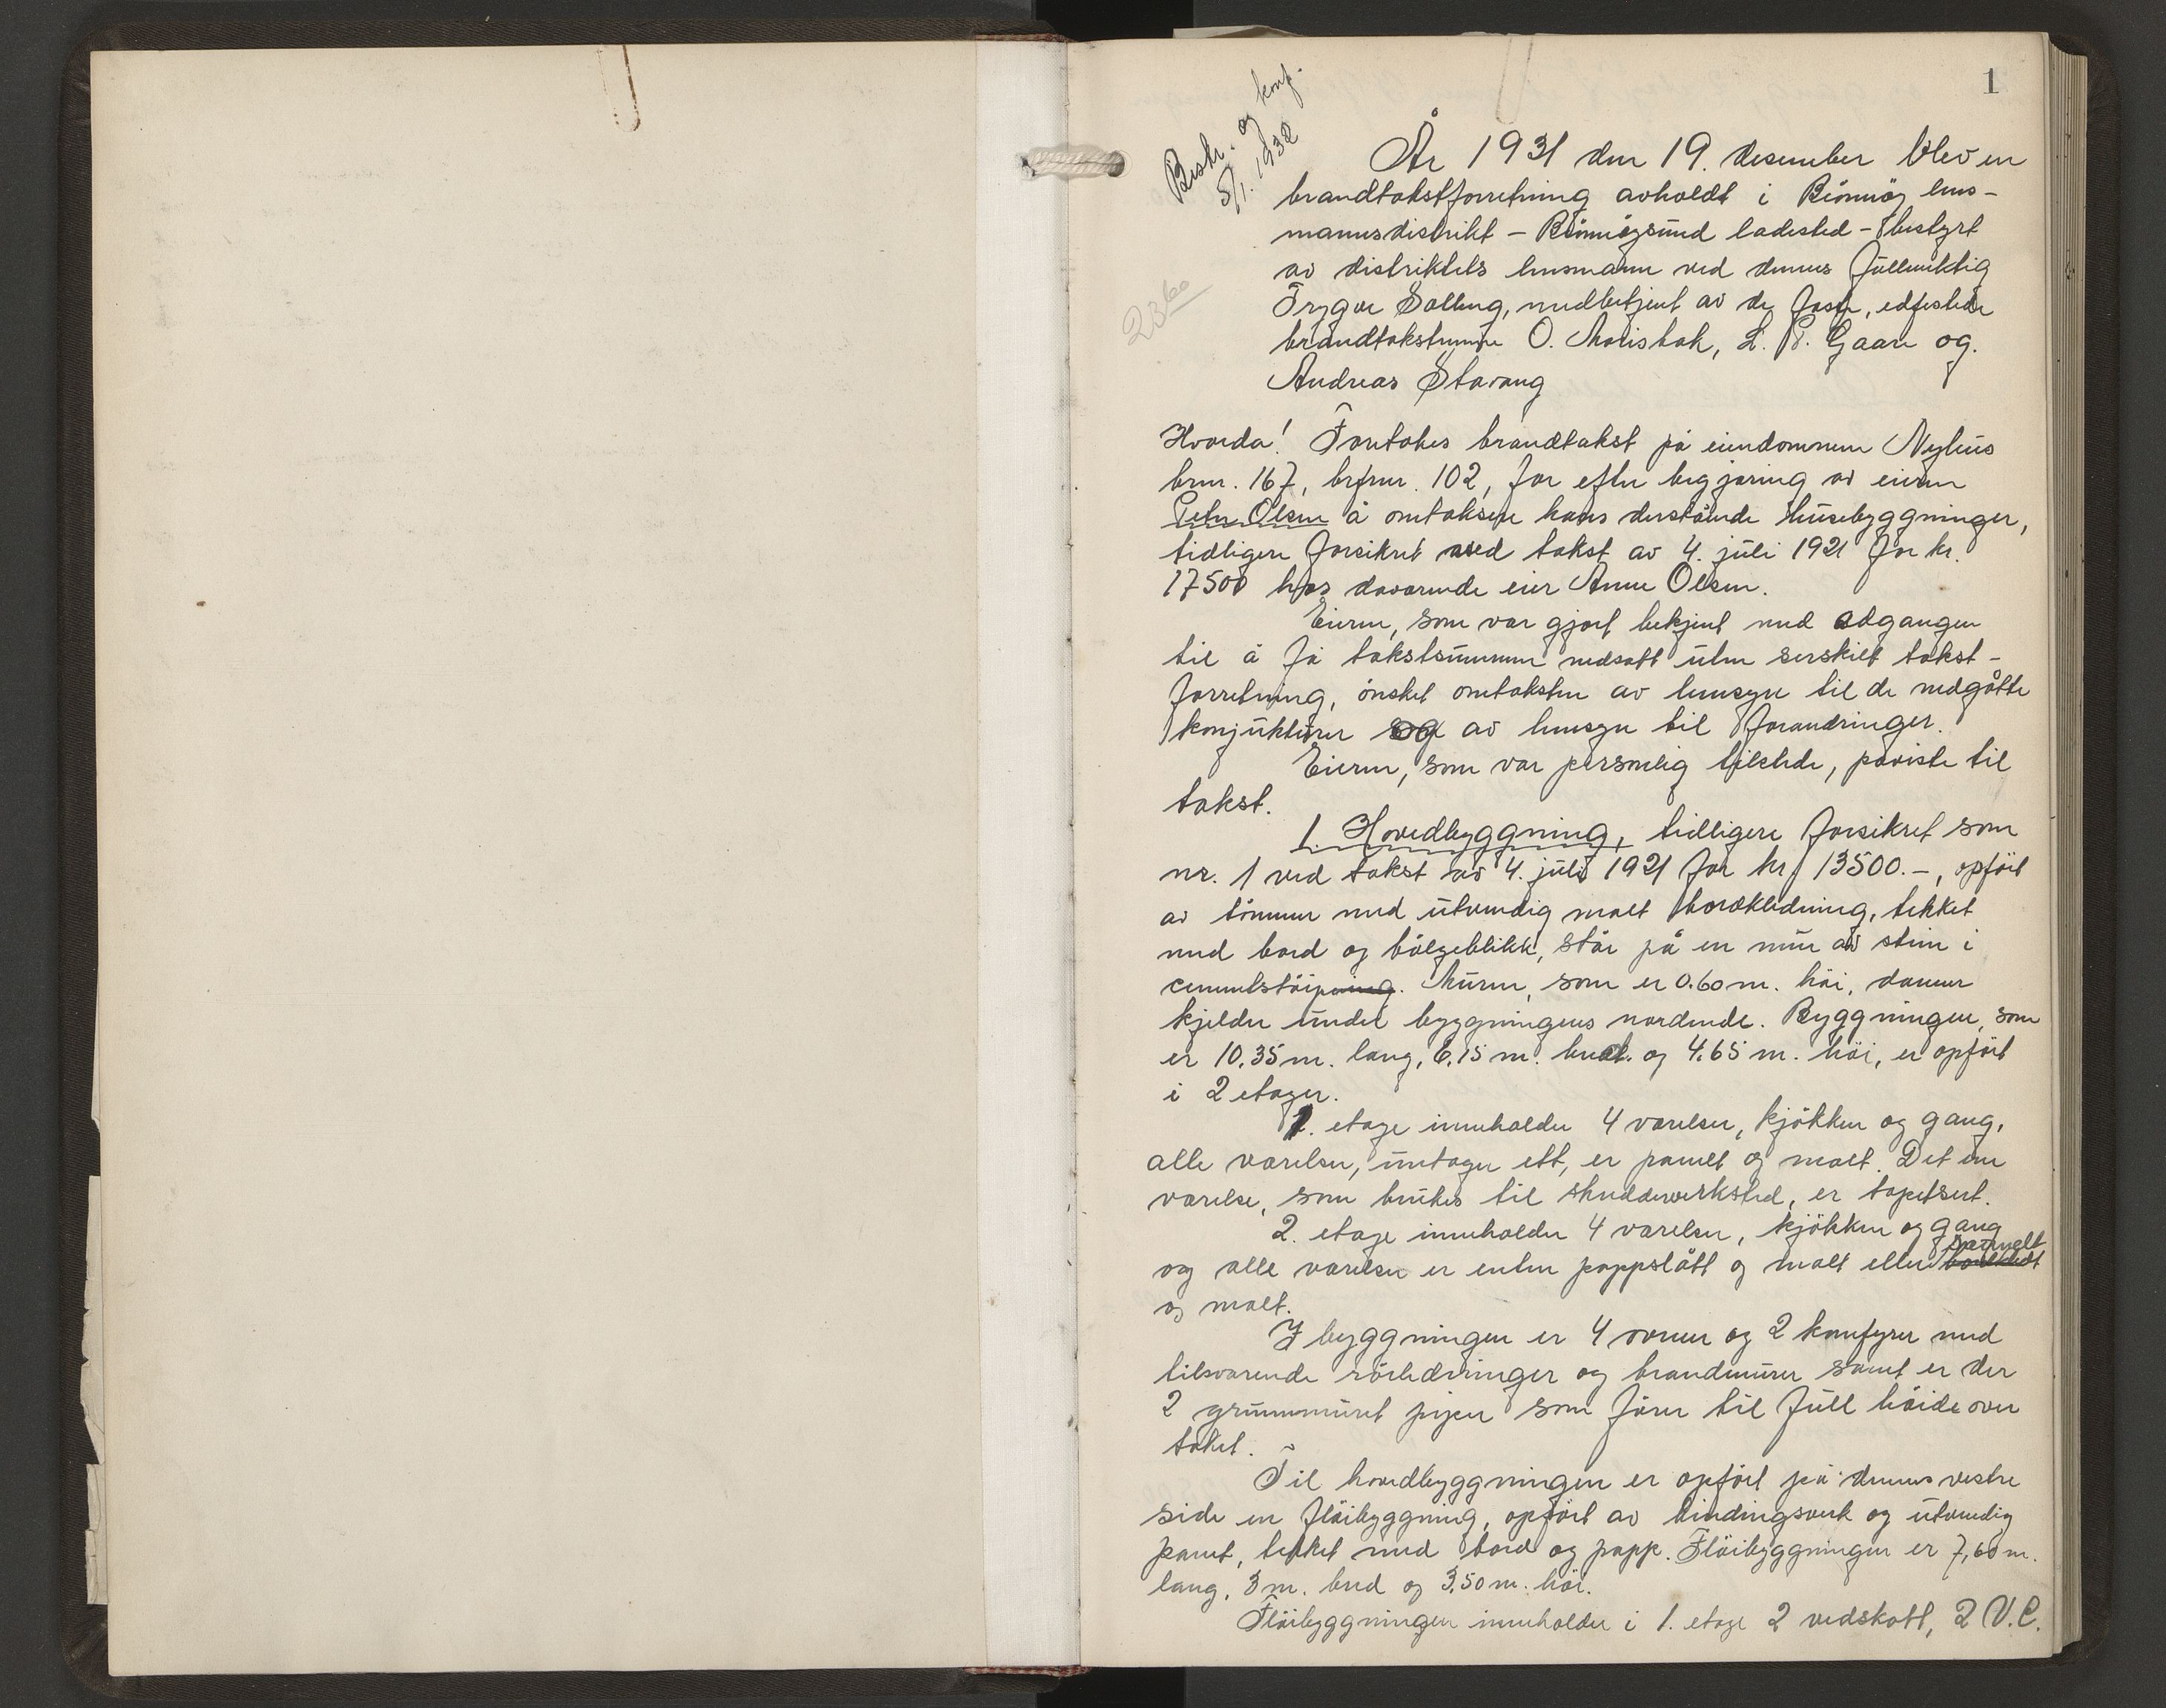 1
Beskr. og konf.
5/1. 1932
23.60
År 1931 den 19. desember blev en
brandtakstforretning avholdt i Brönnöy lens-
mannsdistrikt - Brönnöysund ladested - bestyrt
av distriktets lensmann ved dennes fullmektig
Trygve Solberg, medbetjent av de faste, edfestede
brandtakstmenn O. Morisbak, L. P. Gaare og
Andreas Stavang
Hvorda! Foretokes brandtakst på eiendommen Nyhus
brnr. 167, brfnr. 102, for efter begjæring av eieren
Peter Olsen å omtaksere hans derstående husebyggninger,
tidligere forsikret ved takst av 4. juli 1921 for kr.
17500 hos daværende eier Anne Olsen.
Eieren, som var gjort bekjent med adgangen
til å få takstsummen nedsatt uten serskilt takst-
forretning, önsket omtaksten av hensyn til de nedgåtte
konjukturer og av hensyn til forandringer.
Eieren, som var personlig tilstede, påviste til
takst.
1. Hovedbyggning, tidligere forsikret som
nr. 1 ved takst av 4. juli 1921 for kr 13500.-, opfört
av tömmer med utvendig malt bordkledning, tekket
med bord og bölgeblikk, står på en mur av stein i
cementstöipning. Muren, som er 0.60 m. höi, danner
kjelder under byggningens nordende. Byggningen, som
er 10,35 m. lang, 6,15 m. bred og 4,65 m. höi, er opfört
i 2 etager.
1. etage inneholder 4 værelser, kjökken og gang,
alle værelser, untagen ett, er panelt og malt. Det ene
værelse, som brukes til skredderverksted, er tapetsert.
2. etage inneholder 4 værelser, kjökken og gang
og alle værelser er enten pappslått og malt eller panelt
og malt.
I byggningen er 4 ovner og 2 komfyrer med
tilsvarende rörledninger og brandmurer samt er der
2 grunnmuret piper som förer til full höide over
taket.
Til hovedbyggningen er opfört på dennes vestre
side en flöibyggning, opfört av bindingsverk og utvendig
panel, tekket med bord og papp. Flöibyggningen er 7,60 m.
lang, 3 m. bred og 3,50 m. höi.
Flöibyggningen inneholder i 1. etage 2 vedskott, 2 V.C.